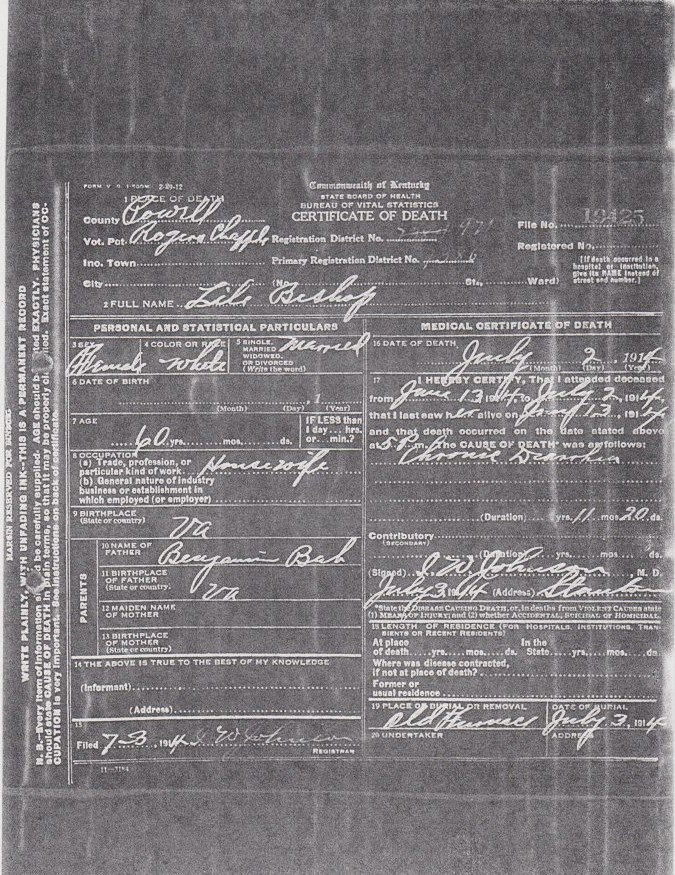 FORM V. S. 2-29-12
Commonwealth of Kentucky
STATE BOARD OF HEALTH
BUREAU OF VITAL STATISTICS
CERTIFICATE OF DEATH
1 PLACE OF DEATH
County Powell
Vot. Pct. Rogers Chappel
Inc. Town
City (No. St., Ward)
Registration District No.
Primary Registration District No.
File No. 19425
Registered No.
[If death occurred in a
hospital or institution,
give its NAME instead of
street and number.]
2 FULL NAME Bishop
PERSONAL AND STATISTICAL PARTICULARS
3 SEX Female
4 COLOR OR RACE White
5 SINGLE, MARRIED WIDOWED, OR DIVORCED (Write the word) Married
6 DATE OF BIRTH
, 1
(Month) (Day) (Year)
7 AGE
60 yrs. mos. ds.
IF LESS than
1 day, hrs.
or min.?
8 OCCUPATION
(a) Trade, profession, or
particular kind of work Housewife
(b) General nature of industry
business or establishment in
which employed (or employer)
9 BIRTHPLACE
(State or country) Va
PARENTS
10 NAME OF
FATHER Benjamin
11 BIRTHPLACE
OF FATHER
(State or country) Va
12 MAIDEN NAME
OF MOTHER
13 BIRTHPLACE
OF MOTHER
(State or country)
14 THE ABOVE IS TRUE TO THE BEST OF MY KNOWLEDGE
(Informant)
(Address)
15
Filed 7-3, 1914 J W Johnson
REGISTRAR
MEDICAL CERTIFICATE OF DEATH
16 DATE OF DEATH
July 2, 1914
(Month) (Day) (Year)
17 I HEREBY CERTIFY, That I attended deceased
from June 13 1914, to July 2, 1914,
that I last saw her alive on 13, 1914
and that death occurred on the date stated above
at 5 P.m. The CAUSE OF DEATH* was as follows:
Chronic
(Duration) yrs. 11 mos. 20 ds.
Contributory
(SECONDARY)
(Duration) yrs. mos. ds.
(Signed) J. W. Johnson M. D.
July 3, 1914 (Address) Stanton
*State the DISEASE CAUSING DEATH, or, in deaths from VIOLENT CAUSES state
(1) MEANS OF INJURY; and (2) whether ACCIDENTAL, SUICIDAL or HOMICIDAL
18 LENGTH OF RESIDENCE (FOR HOSPITALS, INSTITUTIONS, TRAN-
SIENTS OR RECENT RESIDENTS)
At place
of death yrs. mos. ds.
In the
State yrs. mos. ds.
Where was disease contracted,
if not at place of death?
Former or
usual residence
19 PLACE OF BURIAL OR REMOVAL
Old Furnace
DATE OF BURIAL
July 3, 1914
20 UNDERTAKER
ADDRESS
MARGIN RESERVED FOR BINDING
WRITE PLAINLY, WITH UNFADING INK—THIS IS A PERMANENT RECORD
N. B.—Every item of information be carefully supplied. AGE should be EXACTLY. PHYSICIANS
should state CAUSE OF DEATH in plain terms, so that it may be properly Exact statement of OC-
CUPATION is very important. See instructions on back of certificate.